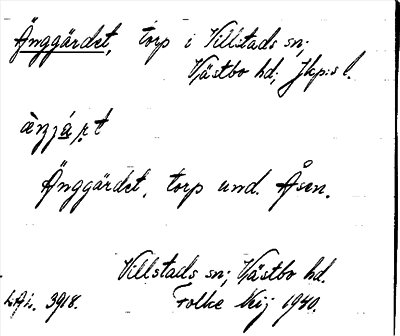 Änggärdet, torp i Villstads sn;
Västbo hd; Jkp:s l.
Änggärdet, torp und. Åsen.
Villstads sn; Västbo hd.
LAL. 3918. Folke 1940.